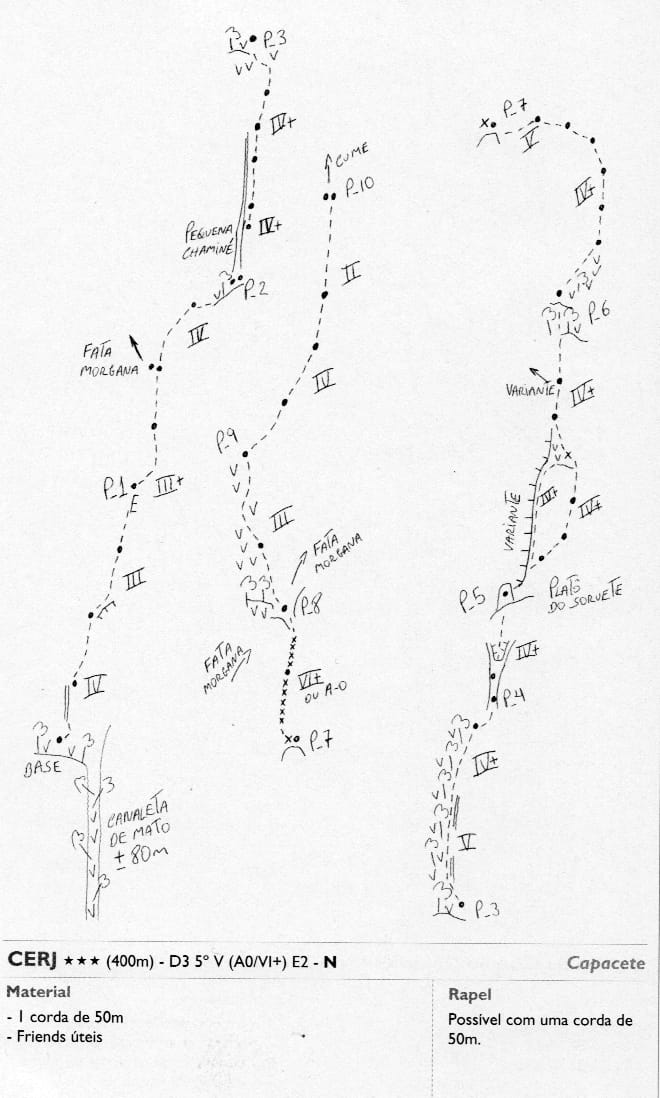 P_3
IV+
PEQUENA
CHAMINÉ
IV+
P_2
IV
FATA
MORGANA
P_1
E
III+
III
IV
BASE
CANALETA
DE MATO
± 80m
CUME
P_10
II
IV
P_9
III
FATA
MORGANA
P_8
FATA
MORGANA
VI+
OU A-0
P_7
P_7
V
IV+
P_6
VARIANTE
IV+
VARIANTE
IV+
IV+
P_5
PLATÔ
DO SORVETE
IV+
P_4
IV+
V
P_3
CERJ ★★★ (400m) - D3 5° V (A0/VI+) E2 - N
Capacete
Material
- 1 corda de 50m
- Friends úteis
Rapel
Possível com uma corda de
50m.